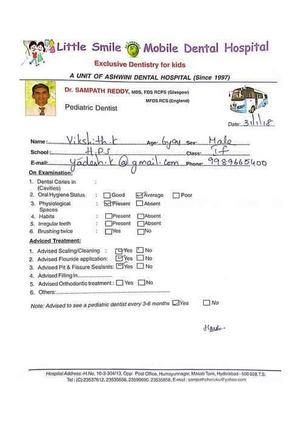 Little Smile Mobile Dental Hospital
Exclusive Dentistry for kids
A UNIT OF ASHWINI DENTAL HOSPITAL (Since 1997)
Dr. SAMPATH REDDY, MDS, FDS RCPS (Glasgow)
MFDS RCS (England)
Pediatric Dentist
Date: 31/1/18
Name: Vikshith.k Age: 6yrs Sex: Male
School: H.P.S Class: If
E-mail: yadesh.k@gmail.com Phone: 9989665400
On Examination:
1. Dental Caries in :
(Cavities)
2. Oral Hygiene Status : Good Average Poor
3. Physiological : Present Absent
Spaces
4. Habits : Present Absent
5. Irregular teeth : Present Absent
6. Brushing twice : Yes No
Adviced Treatment:
1. Advised Scaling/Cleaning : Yes No
2. Advised Flouride application: Yes No
3. Advised Pit & Fissure Sealants: Yes No
4. Advised Filling in
5. Advised Orthodontic treatment : Yes No
6. Others:
Note: Advised to see a pediatric dentist every 3-6 months Yes No
Hospital Address:-H.No. 10-3-304/13, Opp: Post Office, Humayunnagar, Masab Tank, Hyderabad - 500 028.T.S.